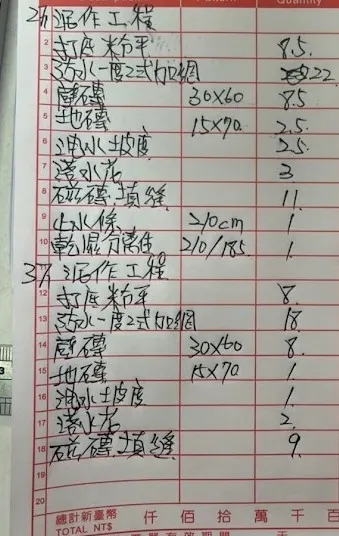 Quantity
2F 泥作工程
2 打底粉平 8.5.
3 防水一度2式加網 22
4 壁磚 30X60 8.5
5 地磚 15X70 2.5
6 洩水坡度 2.5
7 3
8 磁磚填縫 11.
9 止水條 210cm 1
10 乾濕分離 210/185. 1.
3F 泥作工程
12 打底粉平 8.
13 防水一度2式加網 18
14 壁磚 30X60 8.
15 地磚 15X70 1.
16 洩水坡度 1.
17 2.
18 磁磚填縫 9.
19
20
總計新臺幣 仟 佰 拾 萬 千 百
TOTAL NT$